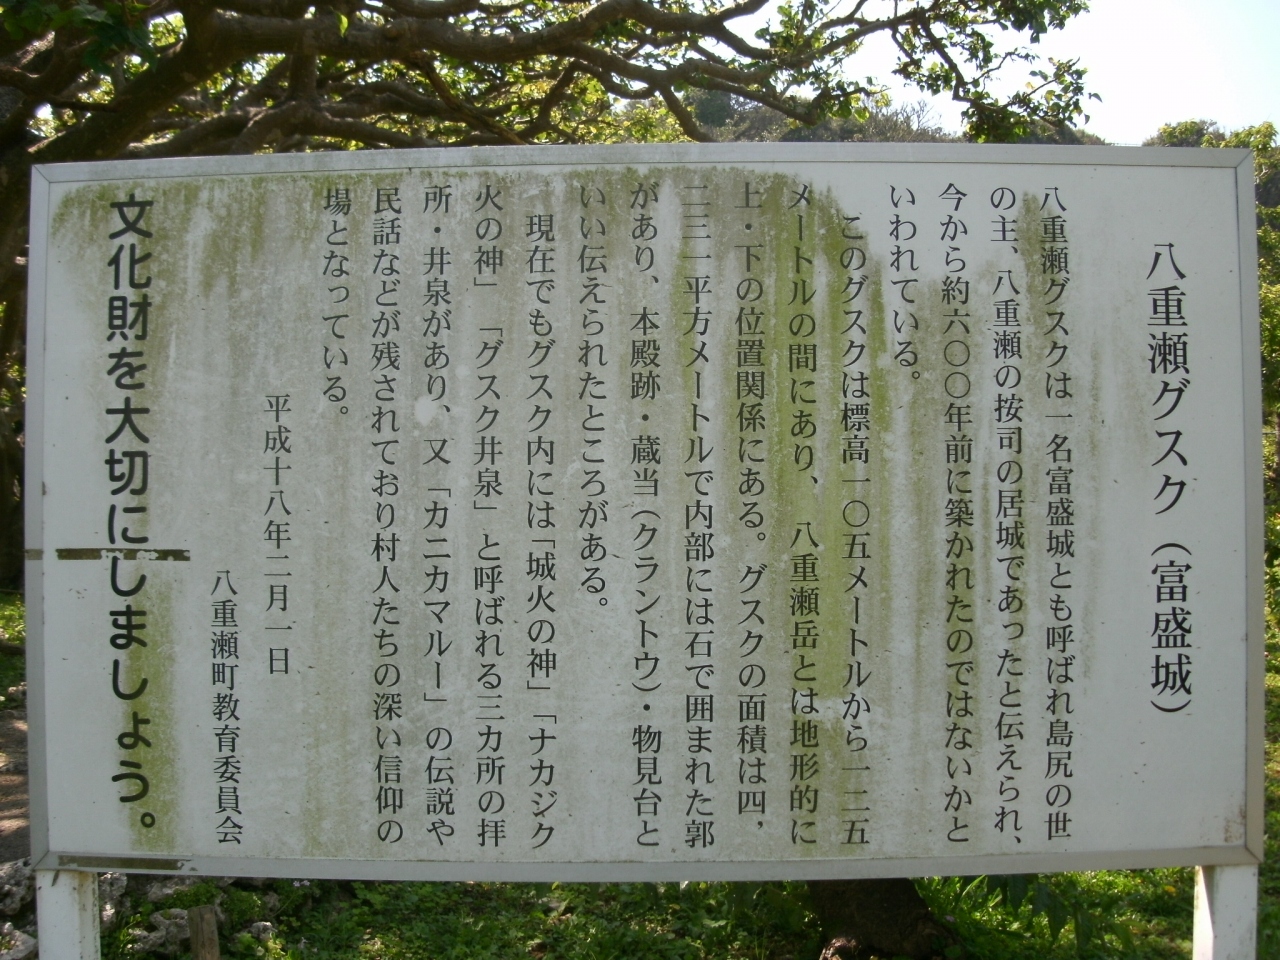 八重瀬グスク（富盛城）
八重瀬グスクは一名富盛城とも呼ばれ島尻の世
の主、八重瀬の按司の居城であったと伝えられ、
今から約六〇〇年前に築かれたのではないかと
いわれている。
このグスクは標高一〇五メートルから一二五
メートルの間にあり、八重瀬岳とは地形的に
上・下の位置関係にある。グスクの面積は四，
二三一平方メートルで内部には石で囲まれた郭
があり、本殿跡・蔵当（クラントウ）・物見台と
いい伝えられたところがある。
現在でもグスク内には「城火の神」「ナカジク
火の神」「グスク井泉」と呼ばれる三カ所の拝
所・井泉があり、又「カニカマルー」の伝説や
民話などが残されており村人たちの深い信仰の
場となっている。
平成十八年二月一日
八重瀬町教育委員会
文化財を大切にしましょう。